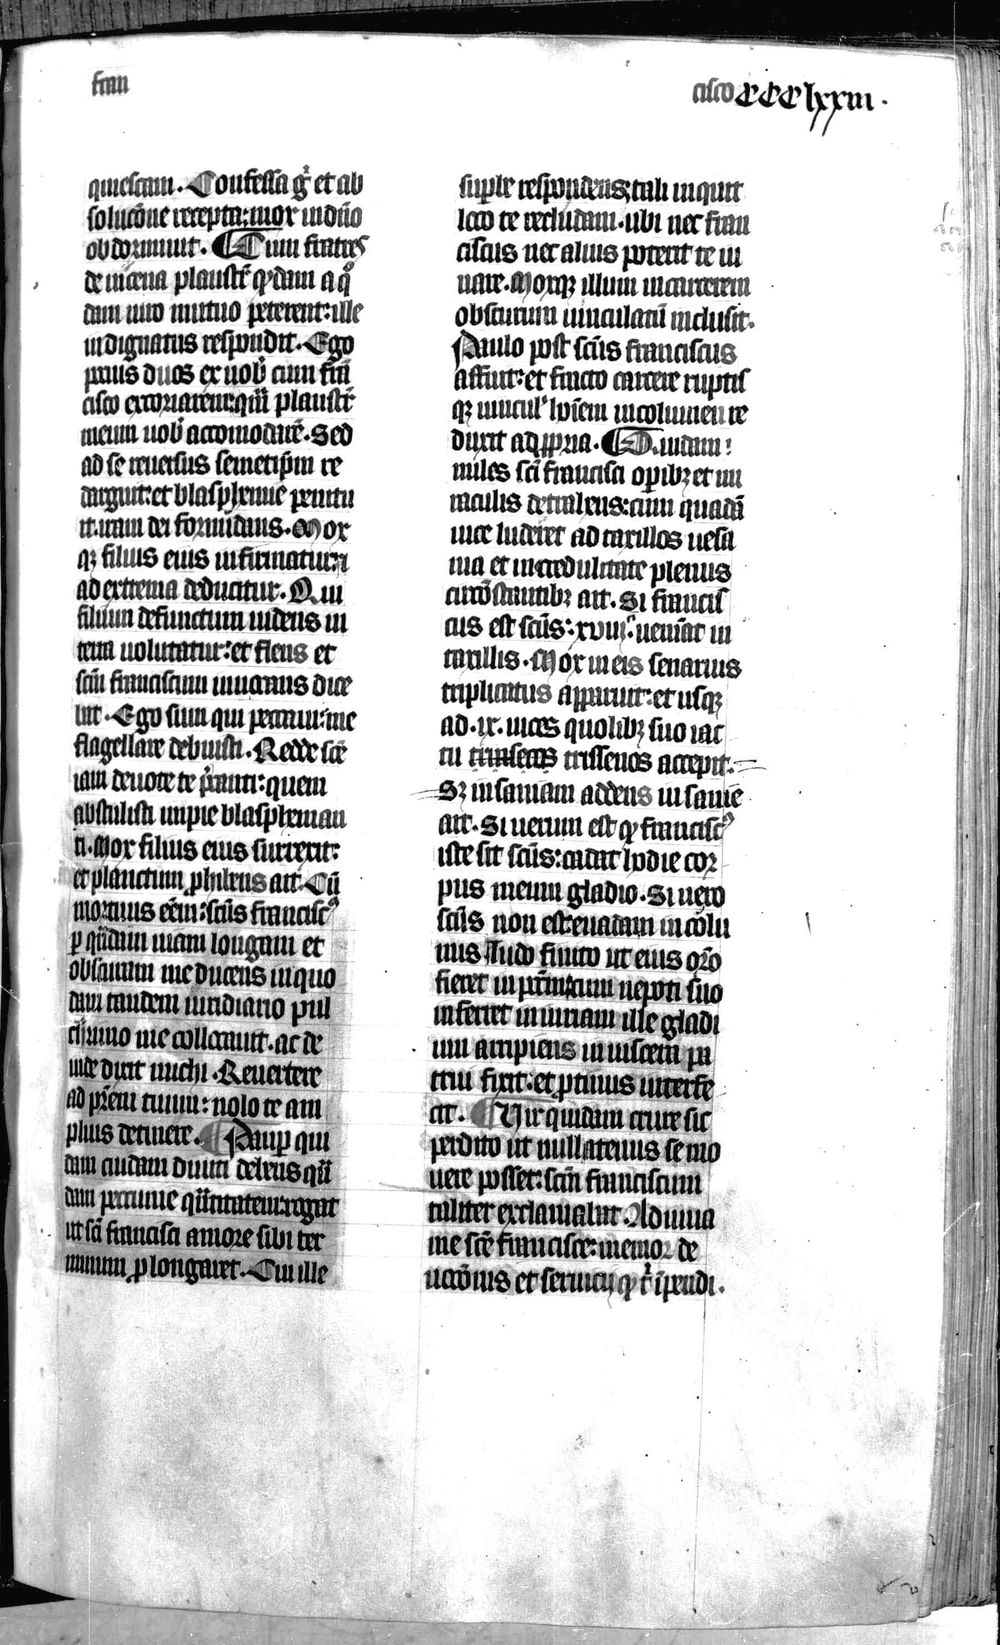 fran
cisco CCClxxiii.
quiescam. Confessa gͥ et ab
solucōne recepta: mox in dn̄o
obdormiuit. ¶ Cum fratres
de nucena plaustr̄ q̄dam a qͦ
dam uiro mutuo peterent: ille
indignatus respondit. Ego
pocius duos ex uob̄ cum frā
cisco excoriarem: qm̄ plaustr̄
meum uob̄ accomodarē. Sed
ad se reuersus semetip̄m re
darguit: et blasphemie penitu
it. iram dei formidans. Mox
qꝫ filius eius infirmatur: ⁊
ad extrema deducitur. Qui
filium defunctum uidens in
terra uolutatur: et flens et
sc̄m franciscum inuocans dice
bat. Ego sum qui peccaui: me
flagellare debuisti. Redde sc̄e
iam deuote te p̄canti: quem
abstulisti impie blaspheman
ti. Mox filius eius surrexit:
et planctum ꝓhibens ait. Cū
mortuus eēm: sc̄us franciscꝰ
ꝑ q̄ndam uiam longam et
obscuram me ducens in quo
dam tandem uiridiario pul
cherrimo me collocauit. ac de
inde dixit michi. Reuertere
ad pr̄em tuum: nolo te am
plius detinere. ¶ Pauꝑ qui
dam cuidam diuiti debens q̄n
dam peccunie q̄ntitatem: rogat
ut sc̄i francisci amore sibi ter
minum ꝓlongaret. Cui ille
suꝑbe respondens: tali inquit
loco te recludam. ubi nec fran
ciscus nec alius poterit te iu
uare. Moxqꝫ illum in carcerem
obscurum uinculatū inclusit.
Paulo post sc̄us franciscus
affuit: et fracto carcere ruptis
qꝫ uincul' hoīem incolumen re
duxit ad ꝓpria. ¶ Quidam
miles sc̄i francisci oꝑibꝫ et mi
raculis detrahens: cum quadā
uice luderet ad taxillos uesa
nia et incredulitate plenus
circūstantibꝫ ait. Si francis
cus est sc̄us: xviij. ueniāt in
taxillis. Mox in eis senarius
triplicatus apparuit: et usqꝫ
ad .ix. uices quolibꝫ suo iac
tu trissenos accepit.
Sꝫ insaniam addens insanie
ait. Si uerum est qͥ franciscꝰ
iste sit sc̄us: cadat hodie cor
pus meum gladio. Si uero
sc̄us non est: euadam incolu
mis. Ludo finito ut eius or̄o
fieret in pctm̄: cum nepoti suo
inferret iniuriam ille gladi
um arripiens in uisceribꝫ pa
trui fixit: et ꝓtinus interfe
cit. ¶ Vir quidam crure sic
perdito ut nullatenus se mo
uere posset: sc̄m franciscum
taliter exclamabat. Adiuua
me sc̄e francisce: memor de
uocōnis et seruicij qͥ tͥ īpendi.